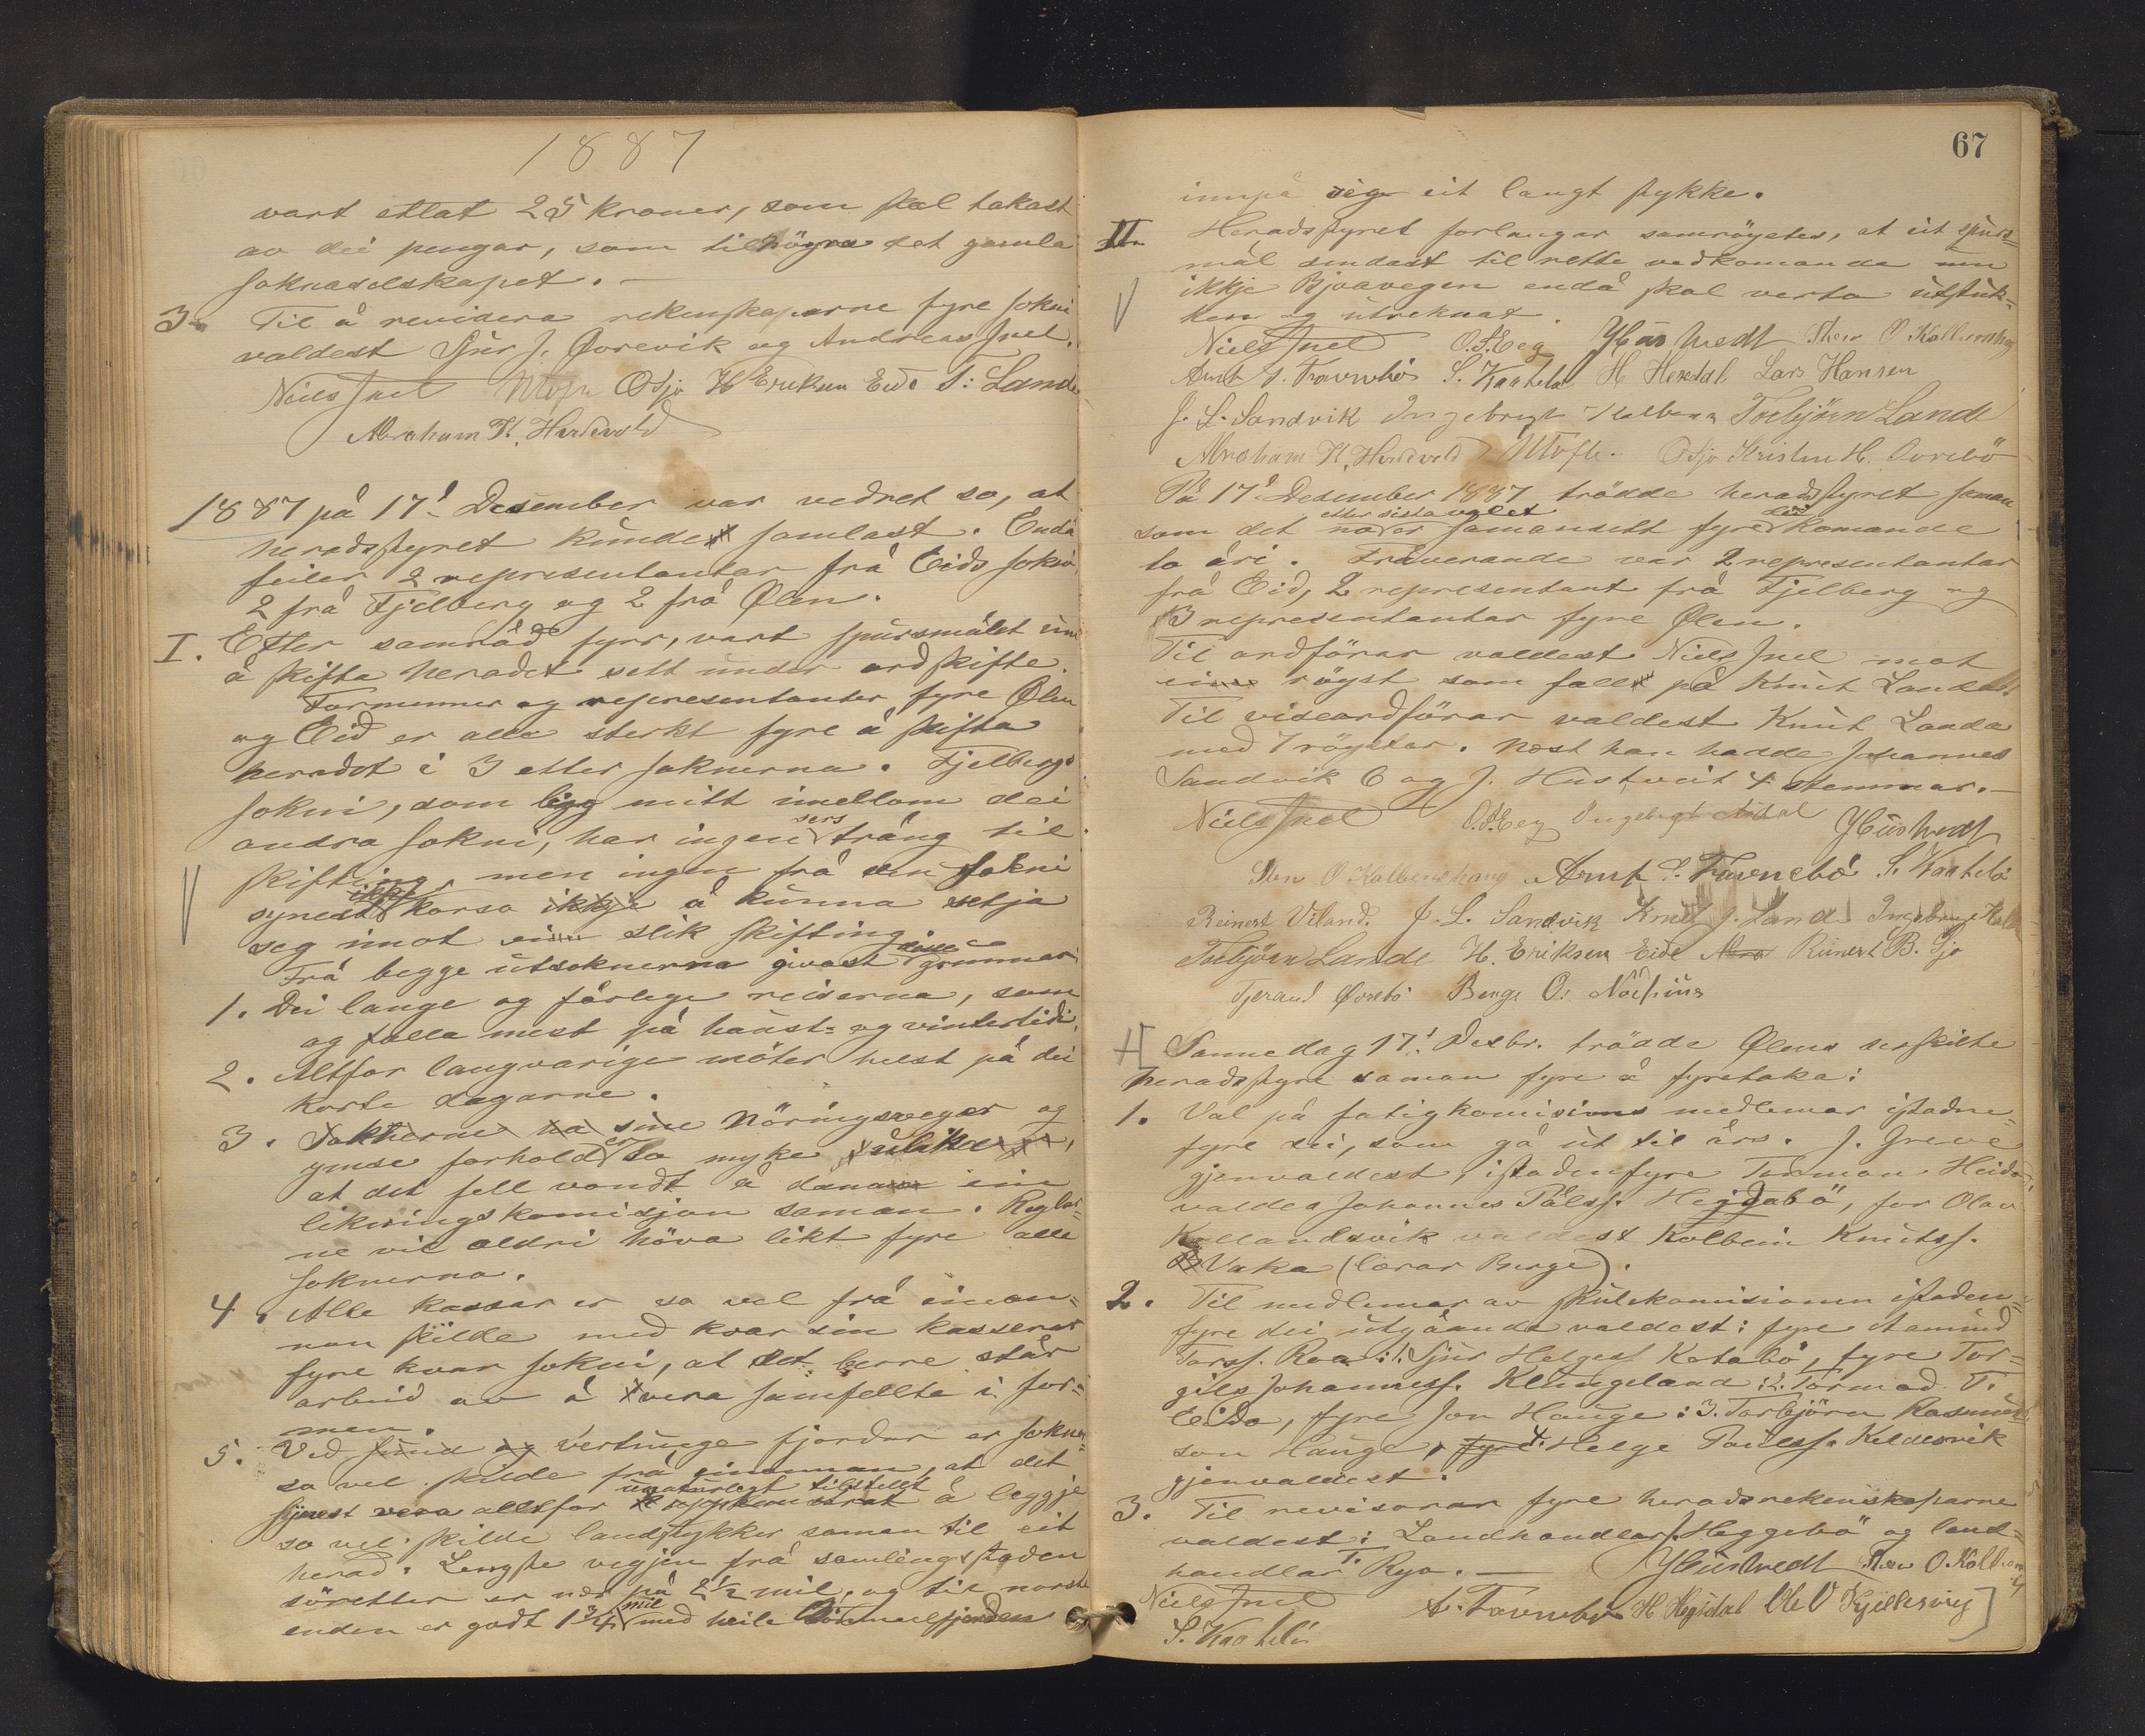 1887
vart etlat 25 kroner, som skal takast
av dei pengar, som tilhøyra det gamla
soknaselskapet. —
3. Til å revidera rekenskaparne fyre sokni
valdest Sjur J. Øvrevik og Andreas Juel.
Niels Juel O Sjo H Eriksen Eide T: Lande
Abraham K. Hundvold
1887 på 17d Desember var vedret so, at
heradsstyret kunde samlast. Endå
feiler 2 representantar frå Eids sokn,
2 frå Fjelberg og 2 frå Ølen.
I. Etter samråd fyrr, vart spursmålet um
å skifta heradet sett under ordskifte.
Formenner og representanter fyre Ølen
og Eid er alle sterkt fyre å skifta
heradet i 3 etter soknerna. Fjelbergs
sokni, som ligg mitt imellom dei
andra sokni, har ingen sers trång til
skifting, men ingen frå den sokni
synest ikkje korso ikkje å kunna setja
seg imot ein slik skifting.
Frå begge utsoknerna givast desse grunnar
1. Dei lange og fårlege reiserna, som
og falla mest på haust- og vintertidi.
2. Altfor langvarige møter helst på dei
korte dagarne.
3. Soknerne ha sine Nøringsvegar og
ymse forhold er so myke ulike,
at det fell vondt å dana ein
likningskomisjon saman. Reglar-
ne vil aldri høva likt fyre alle
soknerna.
4. Alle kassar er so vel frå einan-
nan skilde med kvar sin kasserar
fyre kvar sokni, at det berre står
arbeid av å vera samfellte i for-
men.
5. Ved sund og vertunge fjordar er sokner
so vel skilde frå einannan, at det
synest vera alltfor unaturlegt tilstellt å leggje
so vel skilde landstykker saman til eit
herad. Lengste vegjen frå samlingsstaden
søretter er nær på 2½ mil, og til norste
enden er godt 1¾ mil med heile fjorden
67
innpå seg eit langt stykke.
II. Heradsstyret forlanger samrøystes, at eit spurs-
mål sendast til rette vedkomande um
ikkje Bjoavegen endå skal verta utstuk-
ken og utreknat.
Niels Juel O.S. Eeg J Hustvedt Sten O Kolbenshaug
Arnt S. Tovrebø S. Kaatebø H Hersdal Lars Hansen
J. L. Sandvik Ingebrigt Torbjörn Lande
Abraham K. Hundvold O Sjo Kristen H. Øvrebö
På 17d Desember 1887 trådde heradsstyret saman
som det no er etter sista valet samansett fyre dei komande
to åri. Fråverande var 2 representantar
frå Eid, 2 representant frå Fjelberg og
3 representantar fyre Ølen.
Til ordförar valdest Niels Juel mot
ein røyst som fall på Knut Landa.
Til viseordförar valdest Knut Landa
med 7 røyster. Nest han hadde Johannes
Sandvik 6 og J. Hustveit 4 stemmar. —
Niels Juel O.S. Eeg Ingebrigt J Hustvedt
Sten O Kolbenshaug Arnt S. Tovrebø S. Kaatebø
Reinert Viland. J. L. Sandvik Knut J. Lande Ingebrigt
Torbjörn Lande H. Eriksen Eide Reinert B. Sjo
Tjerand Øvrebø Berge O.
H Samedag 17d Desbr. trådde Ølens serskilte
heradsstyre saman fyre å fyretaka:
1. Val på fatigkomisions medlemar istaden-
fyre dei, som gå ut til års. J. Greve
gjenvaldest, istadenfyre Tormon Heida
valdes Johannes Pålss. Hegjabö, for Olav
Kollandsvik valdest Kolbein Knutss.
Vaka (lærar Berge).
2. Til medlemar av skulekomisionen istaden-
fyre dei utgåande valdest: fyre Aamund
Torss. Roa: 1. Sjur Helgess Kotabö, fyre Tor-
gils Johanness. Klungeland: 2. Tormod T.
Eida, fyre Jon Hauge: 3. Torbjörn Rasmus-
son Hauge, fyre 4. Helge Paulss. Kildesvik
gjenvaldest.
3. Til revisorar fyre heradsrekenskaparne
valdest: Landhandlar J. Heggebö og land-
handlar T. Ryo. — J Hustvedt Sten O. Kolben
Niels Juel A. Tovrebø H Hersdal Ole O Kjillesvig
S. Kaatebø